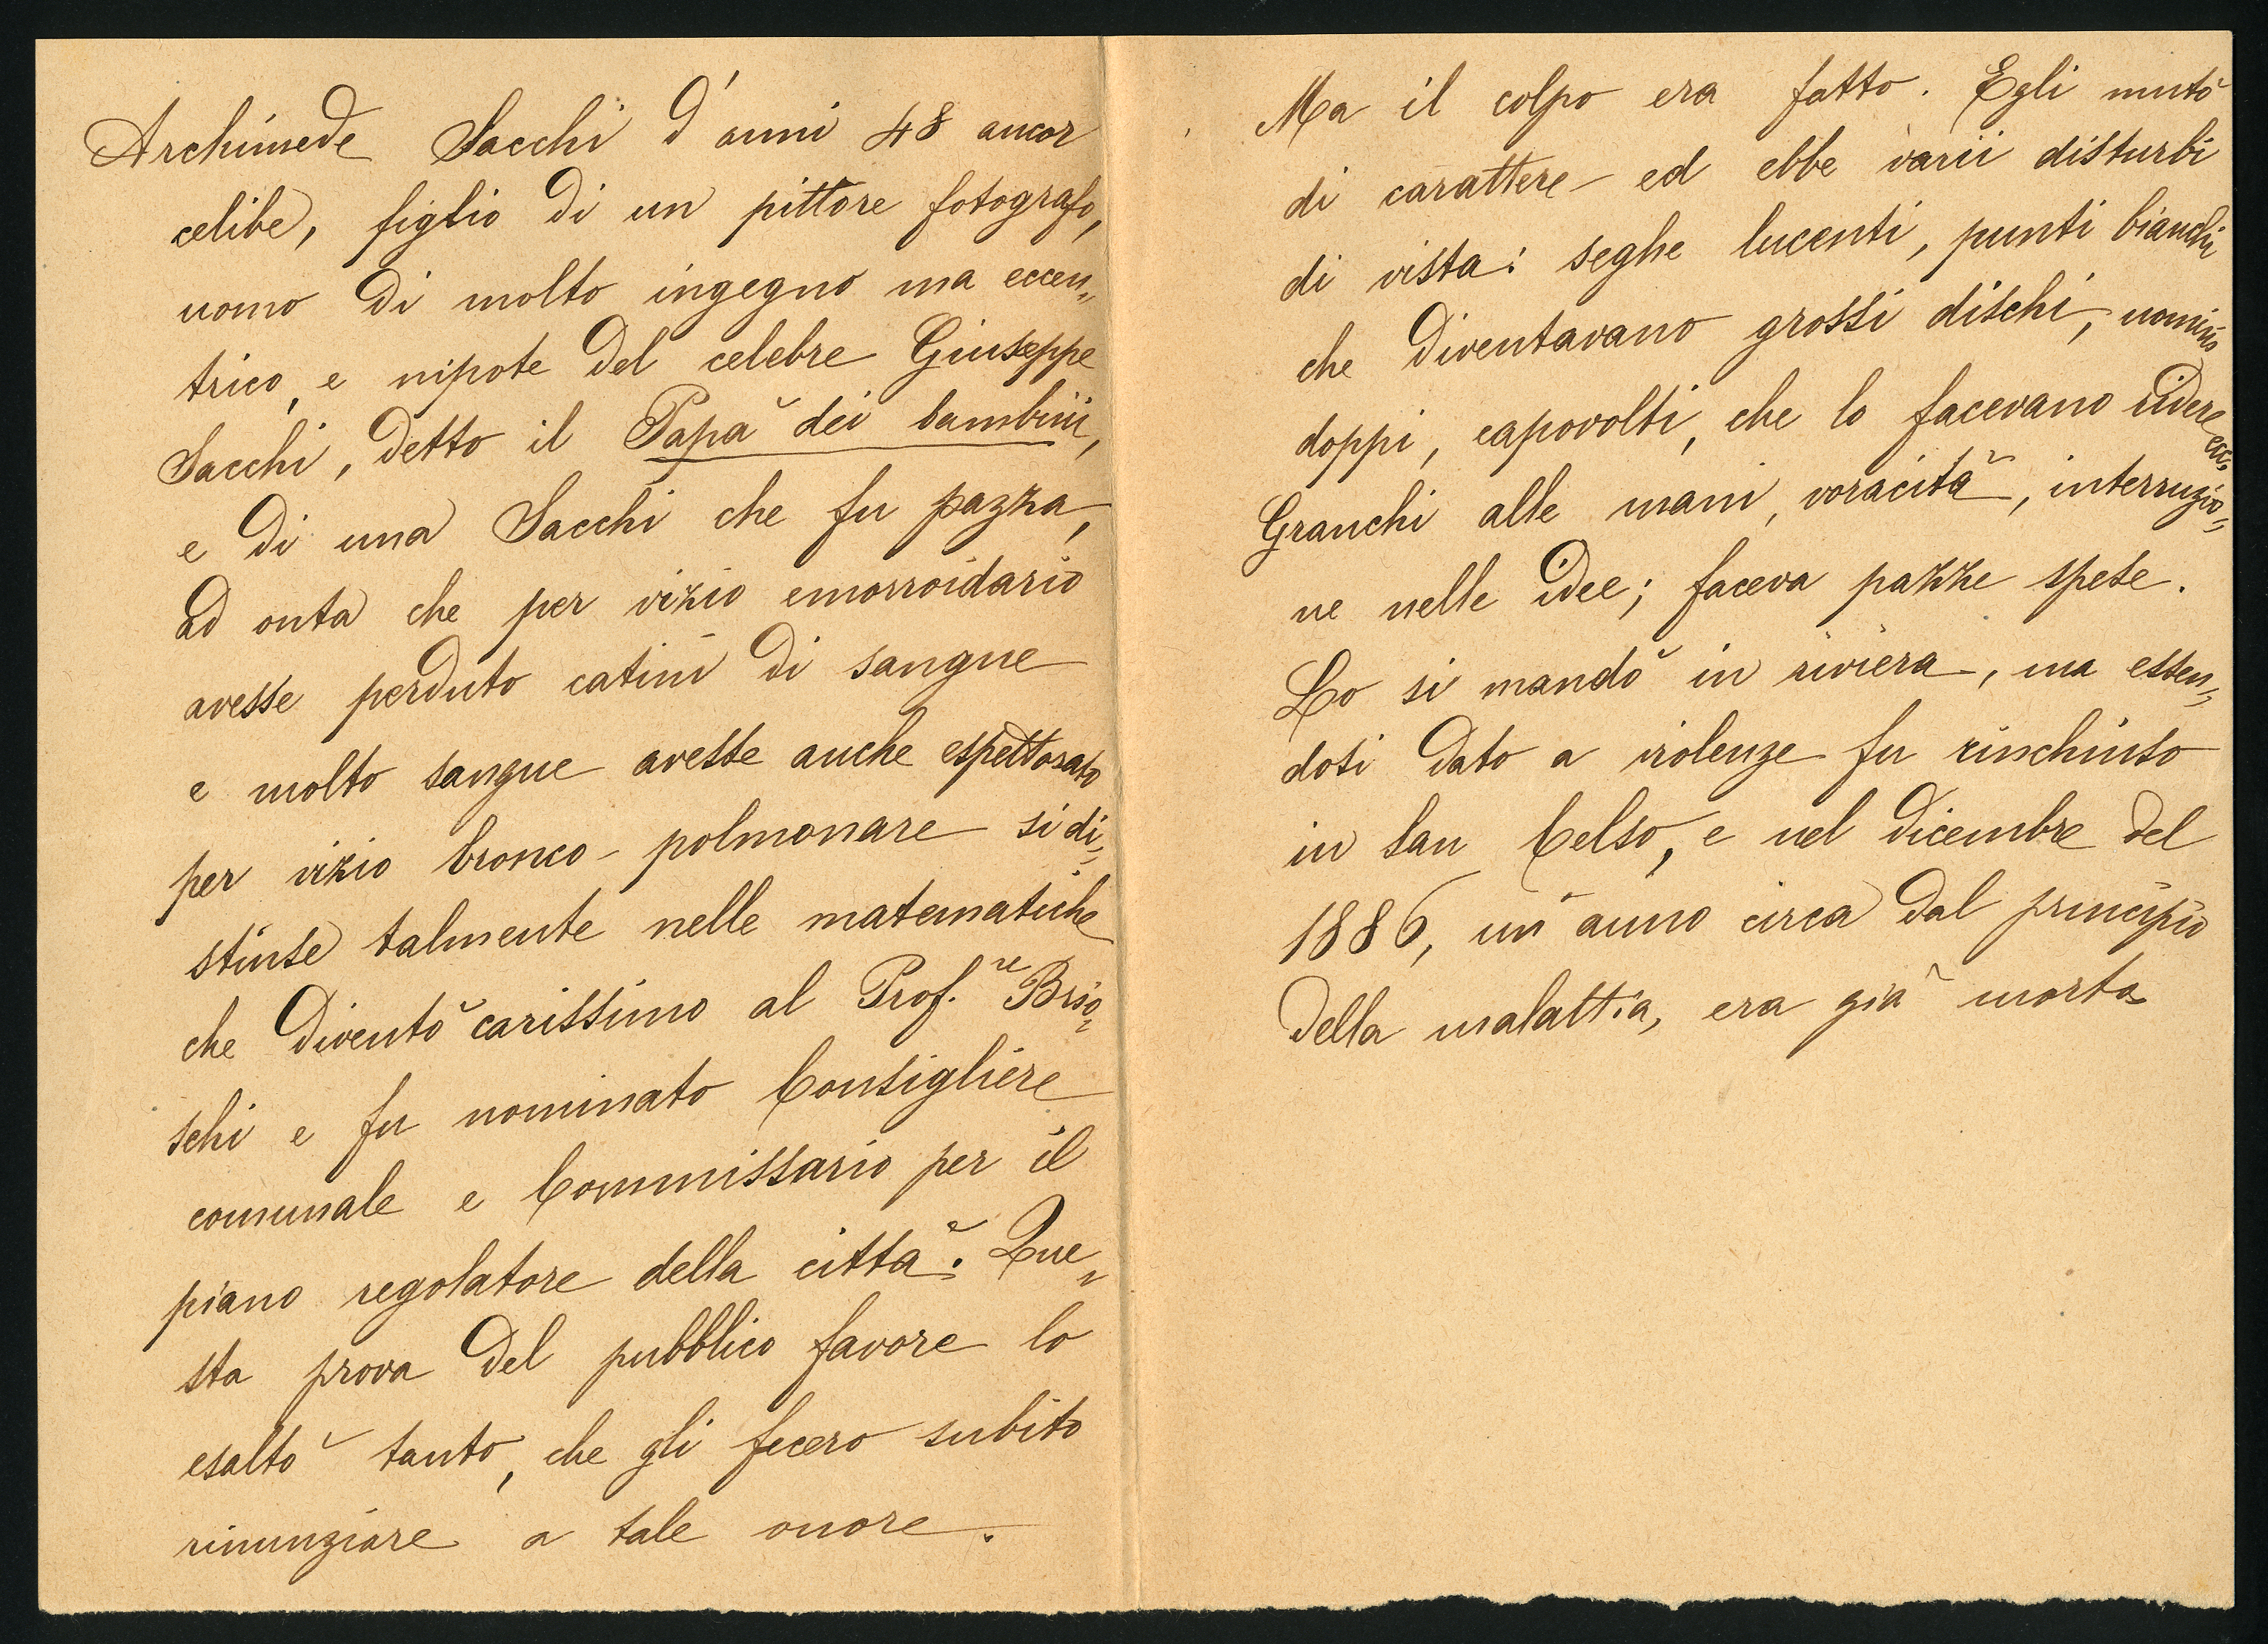 Archimede Sacchi d'anni 48 ancor
celibe, figlio di un pittore fotografo,
uomo di molto ingegno ma eccen=
trico, e nipote del celebre Giuseppe
Sacchi, detto il Papà dei bambini,
e di una Sacchi che fu pazza,
ad onta che per vizio emorroidario
avesse perduto catini di sangue
e molto sangue avesse anche espettorato
per vizio bronco-polmonare si di=
stinse talmente nelle matematiche
che diventò carissimo al Prof.re Brio=
schi e fu nominato Consigliere
comunale e Commissario per il
piano regolatore della città. Que=
sta prova del pubblico favore lo
esaltò tanto, che gli fecero subito
rinunziare a tale onore.
Ma il colpo era fatto. Egli mutò
di carattere ed ebbe varii disturbi
di vista: seghe lucenti, punti bianchi
che diventavano grossi dischi, uomini
doppi, capovolti, che lo facevano ridere ecc.
Granchi alle mani, voracità, interruzio=
ne nelle idee; faceva pazze spese.
Lo si mandò in riviera, ma essen=
dosi dato a violenze fu rinchiuso
in San Celso, e nel dicembre del
1886, un anno circa dal principio
della malattia, era già morto